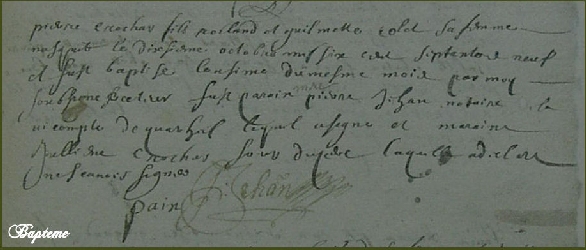 pierre crochar fils rolland et guilmette colet sa femme
nasquit le dixsieme octobre mil six cent septente neuf
et fust baptisé lonsime du mesme mois par moy
soubsigné fust parain pierre Jehan notaire de la
vicompté de quarhal lequel a signé et maraine
Jullienne crochar sœur du pere laquelle a declaré
ne scavoir signer
P: Jehan
pain
Bapteme